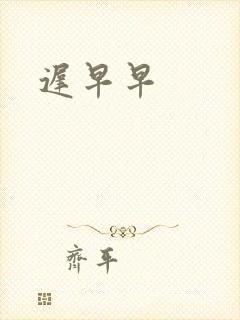 遲早早
齊平